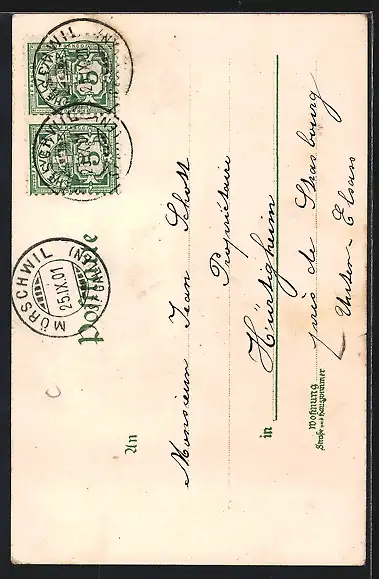 Postkarte
MÖRSCHWIL
25.IX.01
5
5
An
Monsieur Jean Schott
Propriétaire
in Hürtigheim
Wohnung
Straße und Hausnummer
près de Strasbourg
Unter-Elsass